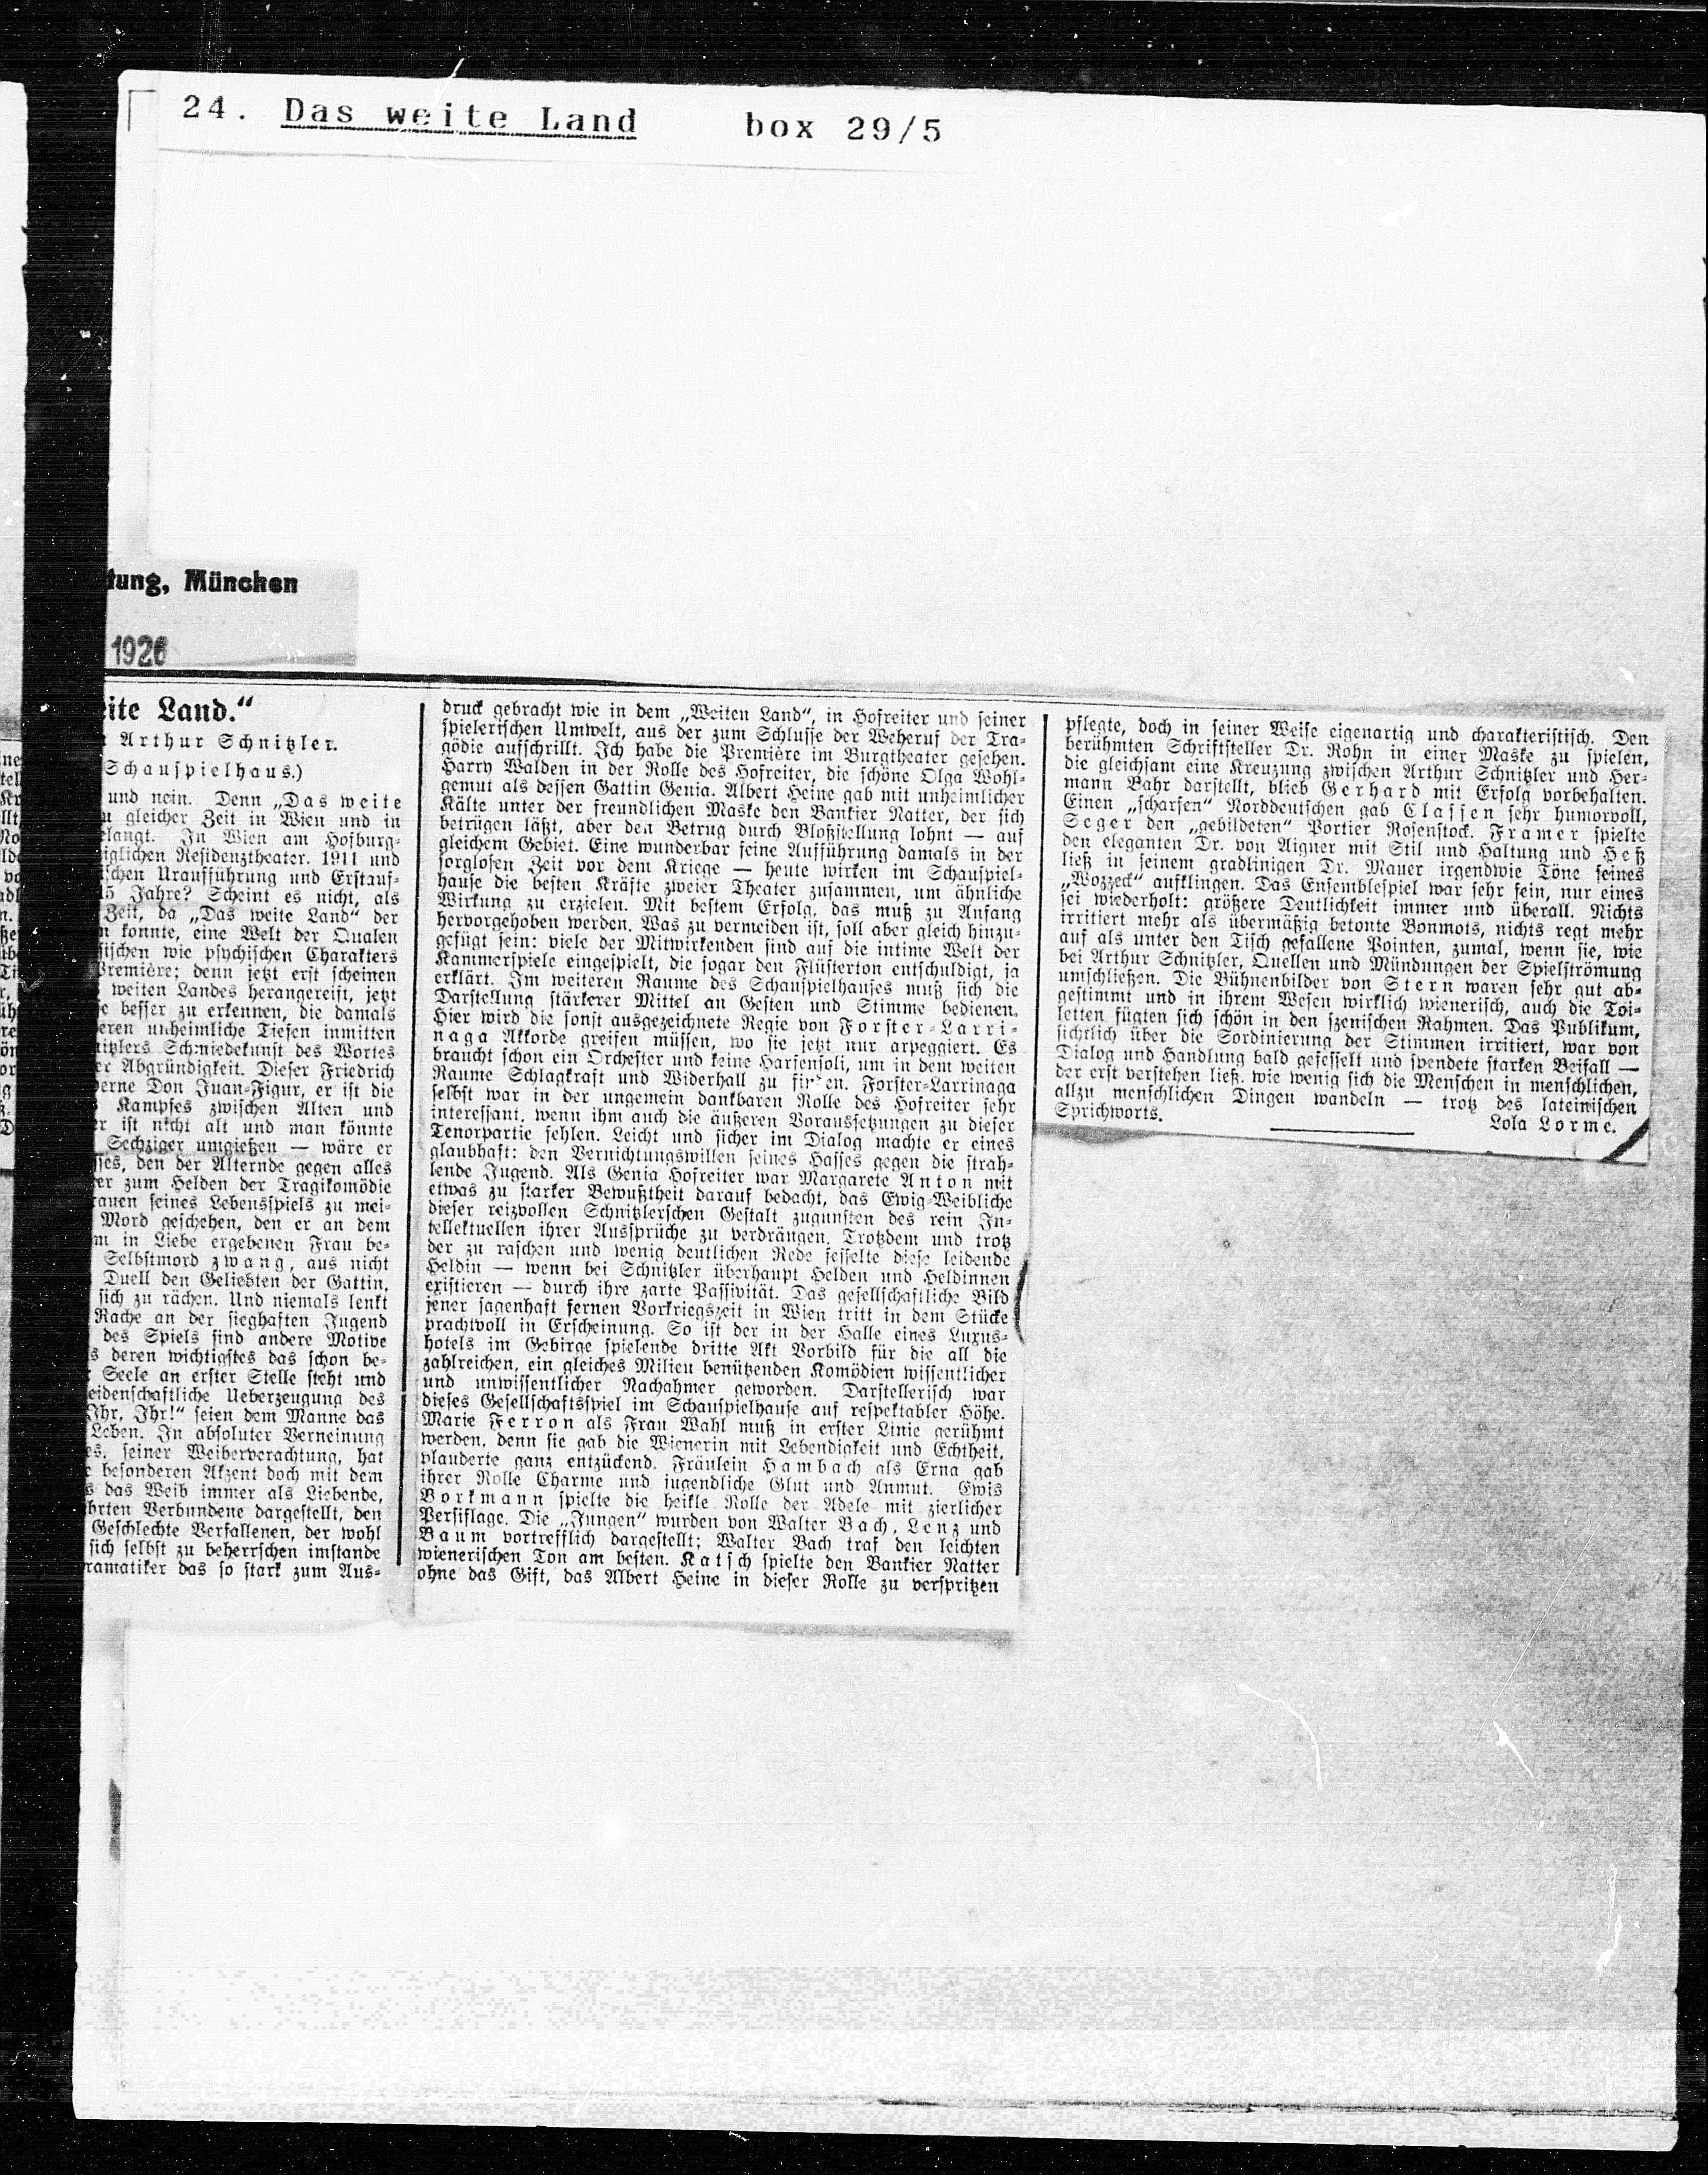 24. Das weite Land box 29/5
tung, München
1926
eite Land.“
Arthur Schnitzler.
Schauspielhaus.)
und nein. Denn „Das weite
u gleicher Zeit in Wien und in
elangt. In Wien am Hofburg-
iglichen Residenztheater. 1911 und
schen Uraufführung und Erstauf-
15 Jahre? Scheint es nicht, als
Zeit, da „Das weite Land“ der
n konnte, eine Welt der Qualen
sischen wie psychischen Charakters
Première; denn jetzt erst scheinen
weiten Landes herangereist, jetzt
e besser zu erkennen, die damals
eren unheimliche Tiefen inmitten
nitzlers Schmiedekunst des Wortes
er Abgründigkeit. Dieser Friedrich
erne Don Juan-Figur, er ist die
Kampfes zwischen Alten und
er ist nicht alt und man könnte
Sechziger umgießen — wäre er
sses, den der Alternde gegen alles
er zum Helden der Tragikomödie
rauen seines Lebensspiels zu mei-
Mord geschehen, den er an dem
m in Liebe ergebenen Frau be-
Selbstmord zwang, aus nicht
Duell den Geliebten der Gattin,
sich zu rächen. Und niemals lenkt
Rache an der sieghaften Jugend
des Spiels sind andere Motive
s deren wichtigstes das schon be-
Seele an erster Stelle steht und
eidenschaftliche Ueberzeugung des
Ihr, Ihr!“ seien dem Manne das
Leben. In absoluter Verneinung
es, seiner Weiberverachtung, hat
e besonderen Akzent doch mit dem
s das Weib immer als Liebende,
hrten Verbundene dargestellt, den
Geschlechte Verfallenen, der wohl
sich selbst zu beherrschen imstande
ramatiker das so stark zum Aus-
druck gebracht wie in dem „Weiten Land“, in Hofreiter und seiner
spielerischen Umwelt, aus der zum Schlusse der Weheruf der Tra-
gödie aufschrillt. Ich habe die Première im Burgtheater gesehen.
Harry Walden in der Rolle des Hofreiter, die schöne Olga Wohl-
gemut als dessen Gattin Genia. Albert Heine gab mit unheimlicher
Kälte unter der freundlichen Maske den Bankier Natter, der sich
betrügen läßt, aber den Betrug durch Bloßstellung lohnt — auf
gleichem Gebiet. Eine wunderbar feine Aufführung damals in der
sorglosen Zeit vor dem Kriege — heute wirken im Schauspiel-
hause die besten Kräfte zweier Theater zusammen, um ähnliche
Wirkung zu erzielen. Mit bestem Erfolg, das muß zu Anfang
hervorgehoben werden. Was zu vermeiden ist, soll aber gleich hinzu-
gefügt sein: viele der Mitwirkenden sind auf die intime Welt der
Kammerspiele eingespielt, die sogar den Flüsterton entschuldigt, ja
erklärt. Im weiteren Raume des Schauspielhauses muß sich die
Darstellung stärkerer Mittel an Gesten und Stimme bedienen.
Hier wird die sonst ausgezeichnete Regie von Forster-Larri-
naga Akkorde greifen müssen, wo sie jetzt nur arpeggiert. Es
braucht schon ein Orchester und keine Harfensoli, um in dem weiten
Raume Schlagkraft und Widerhall zu finden. Forster-Larrinaga
selbst war in der ungemein dankbaren Rolle des Hofreiter sehr
interessant, wenn ihm auch die äußeren Voraussetzungen zu dieser
Tenorpartie fehlen. Leicht und sicher im Dialog machte er eines
glaubhaft: den Vernichtungswillen seines Hasses gegen die strah-
lende Jugend. Als Genia Hofreiter war Margarete Anton mit
etwas zu starker Bewußtheit darauf bedacht, das Ewig-Weibliche
dieser reizvollen Schnitzlerschen Gestalt zugunsten des rein In-
tellektuellen ihrer Aussprüche zu verdrängen. Trotzdem und trotz
der zu raschen und wenig deutlichen Rede fesselte diese leidende
Heldin — wenn bei Schnitzler überhaupt Helden und Heldinnen
existieren — durch ihre zarte Passivität. Das gesellschaftliche Bild
jener sagenhaft fernen Vorkriegszeit in Wien tritt in dem Stücke
prachtvoll in Erscheinung. So ist der in der Halle eines Luxus-
hotels im Gebirge spielende dritte Akt Vorbild für die all die
zahlreichen, ein gleiches Milieu benützenden Komödien wissentlicher
und unwissentlicher Nachahmer geworden. Darstellerisch war
dieses Gesellschaftsspiel im Schauspielhause auf respektabler Höhe.
Marie Ferron als Frau Wahl muß in erster Linie gerühmt
werden, denn sie gab die Wienerin mit Lebendigkeit und Echtheit,
plauderte ganz entzückend. Fräulein Hambach als Erna gab
ihrer Rolle Charme und jugendliche Glut und Anmut. Ewis
Borkmann spielte die heikle Rolle der Adele mit zierlicher
Persiflage. Die „Jungen“ wurden von Walter Bach, Lenz und
Baum vortrefflich dargestellt; Walter Bach traf den leichten
wienerischen Ton am besten. Katsch spielte den Bankier Natter
ohne das Gift, das Albert Heine in dieser Rolle zu verspritzen
pflegte, doch in seiner Weise eigenartig und charakteristisch. Den
berühmten Schriftsteller Dr. Rohn in einer Maske zu spielen,
die gleichsam eine Kreuzung zwischen Arthur Schnitzler und Her-
mann Bahr darstellt, blieb Gerhard mit Erfolg vorbehalten.
Einen „scharfen“ Norddeutschen gab Classen sehr humorvoll,
Seger den „gebildeten“ Portier Rosenstock. Framer spielte
den eleganten Dr. von Aigner mit Stil und Haltung und Heß
ließ in seinem gradlinigen Dr. Mauer irgendwie Töne seines
„Wozzeck“ aufklingen. Das Ensemblespiel war sehr fein, nur eines
sei wiederholt: größere Deutlichkeit immer und überall. Nichts
irritiert mehr als übermäßig betonte Bonmots, nichts regt mehr
auf als unter den Tisch gefallene Pointen, zumal, wenn sie, wie
bei Arthur Schnitzler, Quellen und Mündungen der Spielströmung
umschließen. Die Bühnenbilder von Stern waren sehr gut ab-
gestimmt und in ihrem Wesen wirklich wienerisch, auch die Toi-
letten fügten sich schön in den szenischen Rahmen. Das Publikum,
sichtlich über die Sordinierung der Stimmen irritiert, war von
Dialog und Handlung bald gefesselt und spendete starken Beifall —
der erst verstehen ließ, wie wenig sich die Menschen in menschlichen,
allzu menschlichen Dingen wandeln — trotz des lateinischen
Sprichworts.
Lola Lorme.